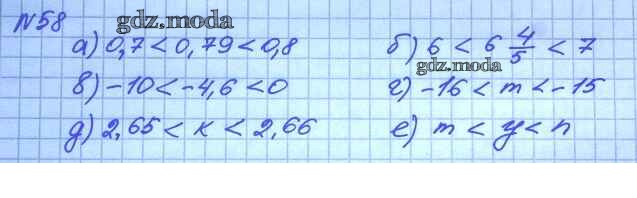 №58 gdz.moda
а) 0,7 < 0,79 < 0,8 б) 6 < 6 4/5 < 7
gdz.moda
в) -10 < -4,6 < 0 г) -16 < m < -15
д) 2,65 < к < 2,66 е) m < y < n